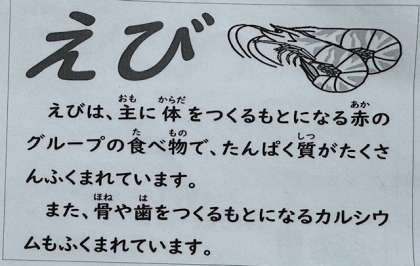 えび
えびは、主に体をつくるもとになる赤の
グループの食べ物で、たんぱく質がたくさ
んふくまれています。
また、骨や歯をつくるもとになるカルシウ
ムもふくまれています。